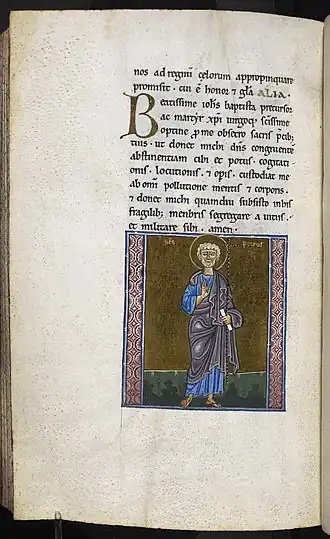 nos ad regnū cęlorum appropinquare
promisit. cui ē honor & gła ALIA.
Beatissime ioħs baptista precursor
ac martyr xp̄i uirgoq; sc̄issime
optine p̄ me obsecro sacris p̄cib;
tuis. ut donet michi dn̄s congruentē
abstinentiam cibi et potus. cogitati-
onis. locutionis. & opis. custodiat me
ab om̄i pollutione mentis & corporis.
& donet michi quamdiu subsisto in his
fragilib; membris segregare a uitiis.
et militare sibi. amen.
SCS PETRUS